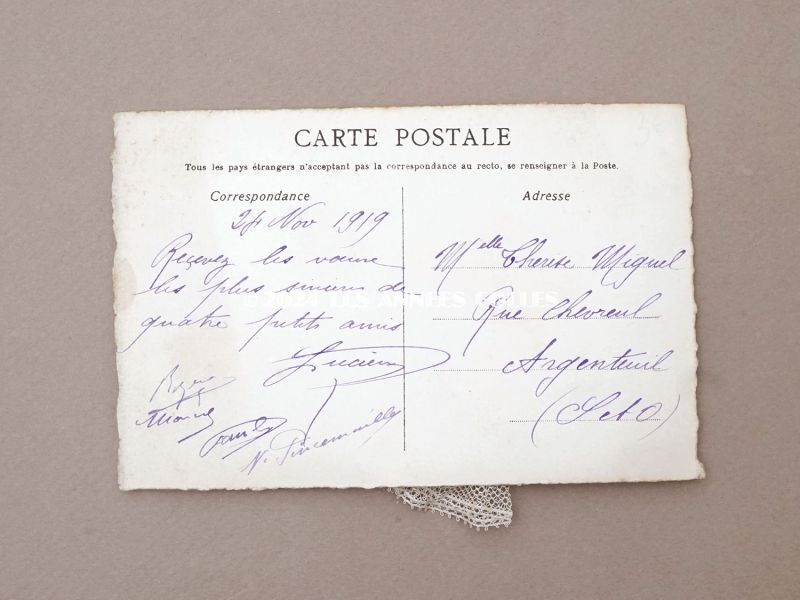 CARTE POSTALE
Tous les pays étrangers n'acceptant pas la correspondance au recto, se renseigner à la Poste.
Correspondance
24 Nov 1919
Recevez les vœux
les plus sincères de
quatre petits amis
Lucien
Roger
N. Pincemaille
Adresse
Melle Therese Miguel
Rue Chevreul
Argenteuil
(S et O)
2024 LES ANNÉES FOLLES